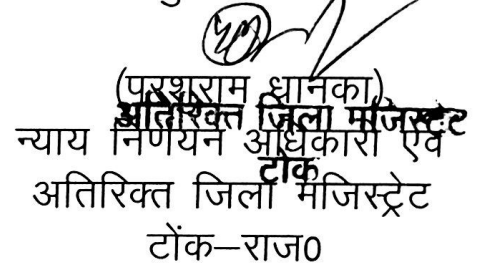 (परशुराम धानका)
अतिरिक्त जिला मजिस्ट्रेट
न्याय निर्णयन अधिकारी एवं
टोंक
अतिरिक्त जिला मजिस्ट्रेट
टोंक–राज0